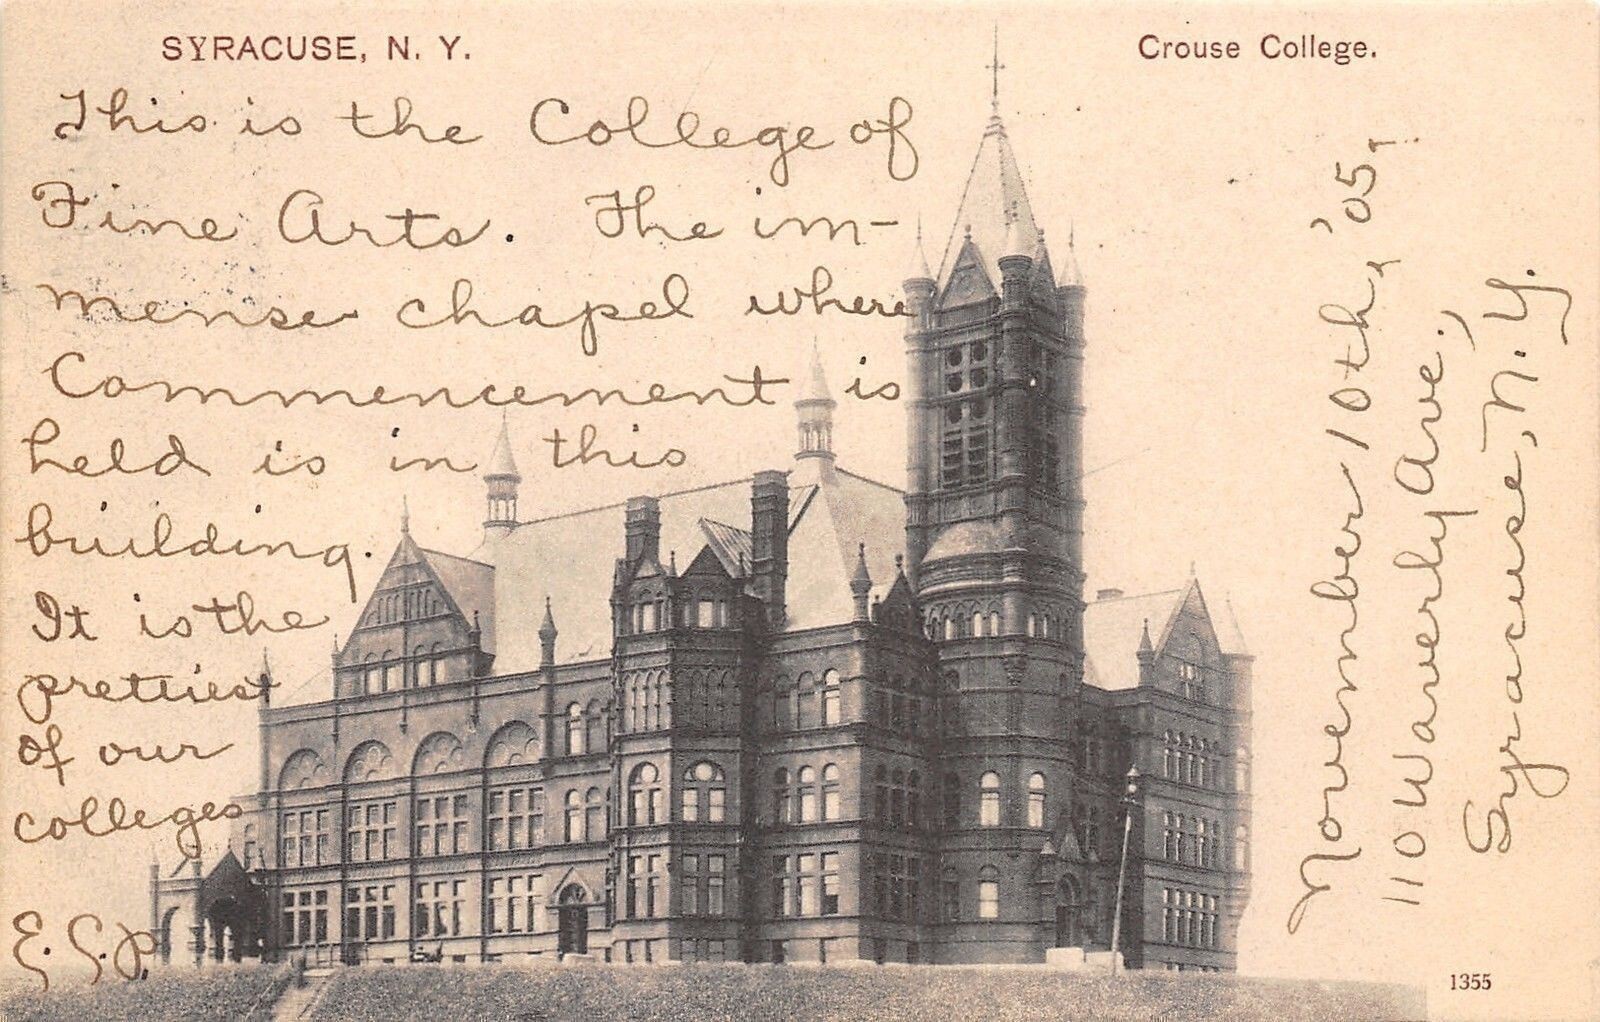 SYRACUSE, N. Y.
Crouse College.
This is the College of
Fine Arts. The im-
mense chapel where
Commencement is
held is in this
building.
It is the
prettiest
of our
colleges
E. S. P.
November 10th, '05,
110 Waverly Ave.,
Syracuse, N. Y.
1355